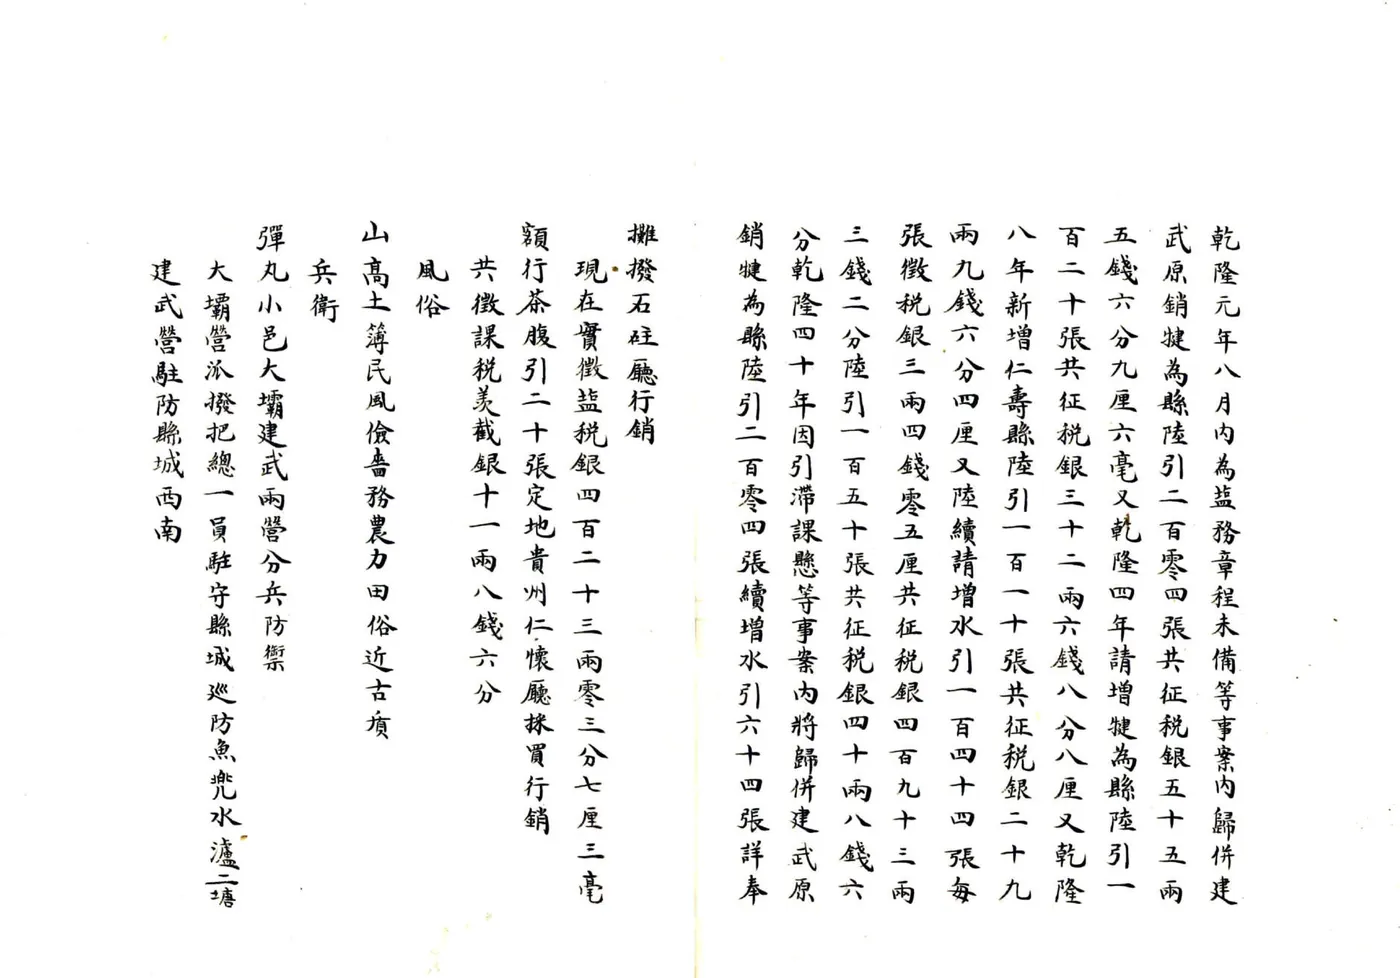 乾隆元年八月內為盐務章程未備等事案內歸併建
武原銷犍為縣陸引二百零四張共征税銀五十五兩
五錢六分九厘六毫又乾隆四年請增犍為縣陸引一
百二十張共征税銀三十二兩六錢八分八厘又乾隆
八年新增仁壽縣陸引一百一十張共征税銀二十九
兩九錢六分四厘又陸續請增水引一百四十四張每
張徵税銀三兩四錢零五厘共征税銀四百九十三兩
三錢二分陸引一百五十張共征税銀四十兩八錢六
分乾隆四十年因引滯課懸等事案內將歸併建武原
銷犍為縣陸引二百零四張續增水引六十四張詳奉
攤撥石砫廳行銷
現在實徵盐税銀四百二十三兩零三分七厘三毫
額行茶腹引二十張定地貴州仁懷廳採買行銷
共徵課税羡截銀十一兩八錢六分
風俗
山高土簿民風儉嗇務農力田俗近古質
兵衛
彈丸小邑大壩建武兩營分兵防禦
大壩營派撥把總一員駐守縣城巡防魚兠水瀘二塘
建武營駐防縣城西南